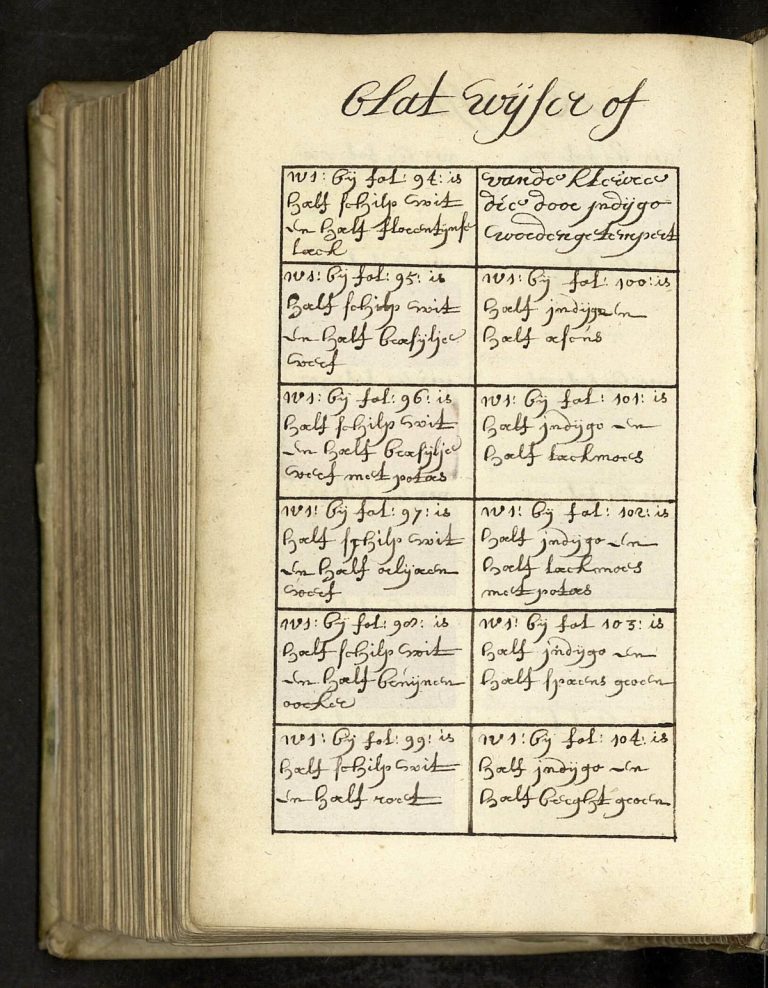 Blat wijser of
N1: bij fol: 94: is
half schilp wit
en half florentijnse
lack
N1: bij fol: 95: is
half schilp wit
en half brasijlie
verf
N1: bij fol: 96: is
half schilp wit
en half brasijlie
verf met potas
N1: bij fol: 97: is
half schilp wit
en half orlijaen
verf
N1: bij fol: 98: is
half schilp wit
en half bruijnen
oocker
N1: bij fol: 99: is
half schilp wit
en half roet
vande kleure
die door indijgo
worden getempert
N1: bij fol: 100: is
half indijgo en
half asens
N1: bij fol: 101: is
half indijgo en
half lackmoes
N1: bij fol: 102: is
half indijgo en
half lackmoes
met potas
N1: bij fol 103: is
half indijgo en
half spaens groen
N1: bij fol: 104: is
half indijgo en
half berght groen